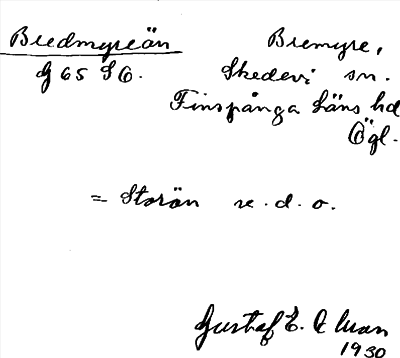 Bredmyreån Bremyre,
G 65 SO. Skedevi sn.
Finspånga läns hd
Ögl.
= Storån se. d. o.
Gustaf E.
1930